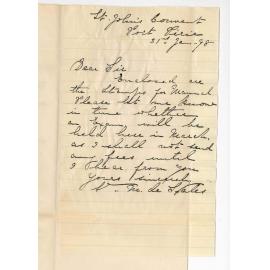 St. John's Convent
Port Pirie
31st Jan. 98
Dear Sir
Enclosed are
the Stamps for
Please let me know
in time whether
an Exam will be
held here in March,
as I shall not send
any fees until
I hear from you
Yours sincerely
M. de Sales